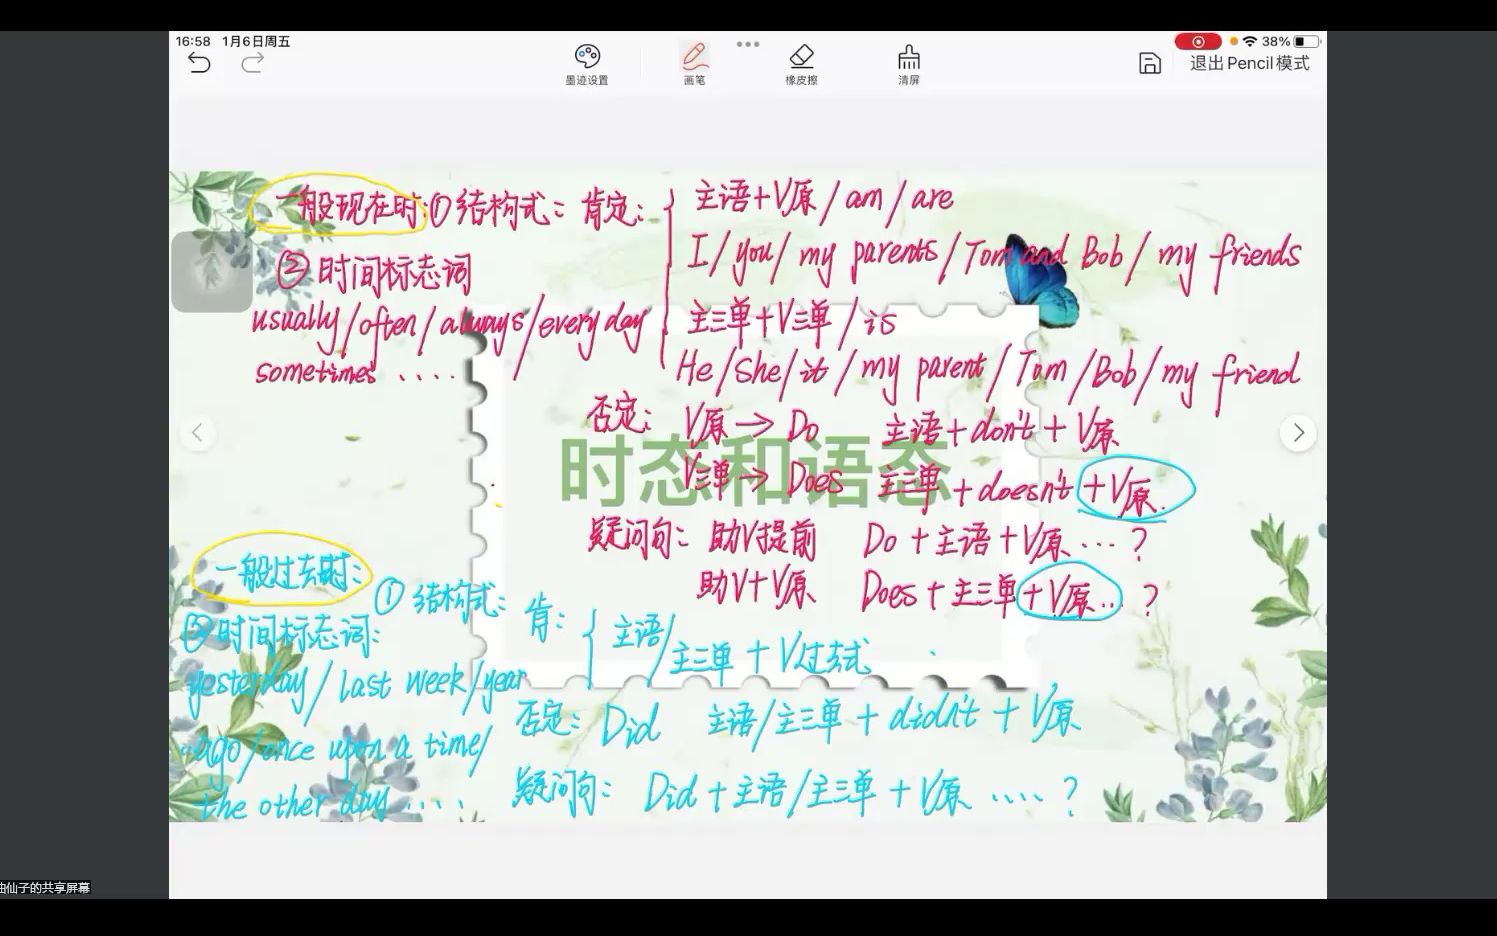 16:58 1月6日周五
38%
墨迹设置 画笔 橡皮擦 清屏
退出Pencil模式
一般现在时:①结构式: 肯定:
主语+V原/am/are
I/you/my parents/Tom and Bob/my friends
主三单+V三单/is
He/She/it/my parent/Tom/Bob/my friend
②时间标志词
usually/often/always/every day
sometimes ....
否定: V原→Do 主语+don't+V原
V三单→Does 主三单+doesn't+V原.
时态和语态
疑问句: 助V提前 Do+主语+V原...?
助V+V原 Does+主三单+V原...?
一般过去时:
①结构式: 肯: 主语/主三单+V过去式
②时间标志词:
yesterday/last week/year
..ago/once upon a time/
the other day ....
否定: Did 主语/主三单+didn't+V原
疑问句: Did+主语/主三单+V原 ....?
仙子的共享屏幕